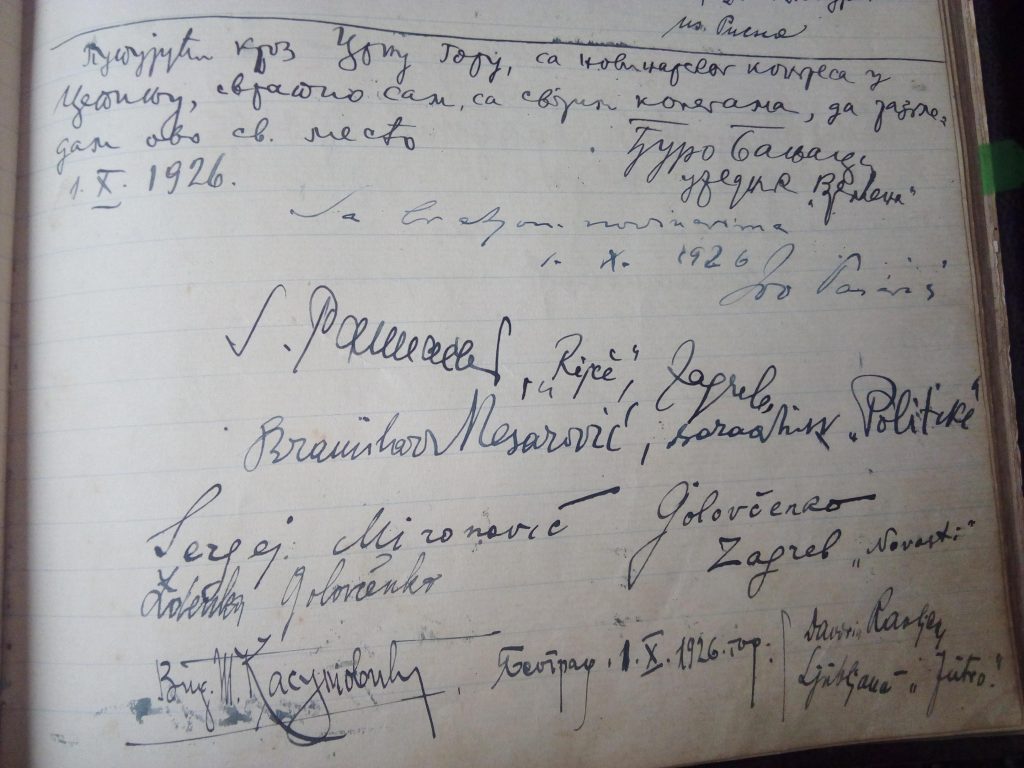 из Рисна
Путујући кроз Црну Гору, са новинарског конгреса у
Цетињу, свратио сам, са својим колегама, да разгле-
дам ово св. место
1. X. 1926.
Ђуро Бањац
уредник „Времена"
Sa bratjom novinarima
1. X. 1926
Ivo
S.
„Riječ", Zagreb,
Branislav Nesarović, „Politike"
Sergej Mironović Golovčenko
Zagreb „Novosti"
Zdenka Golovčenko
Београд. 1. X. 1926. год.
Davorin Ravljen
Ljubljana „Jutro."